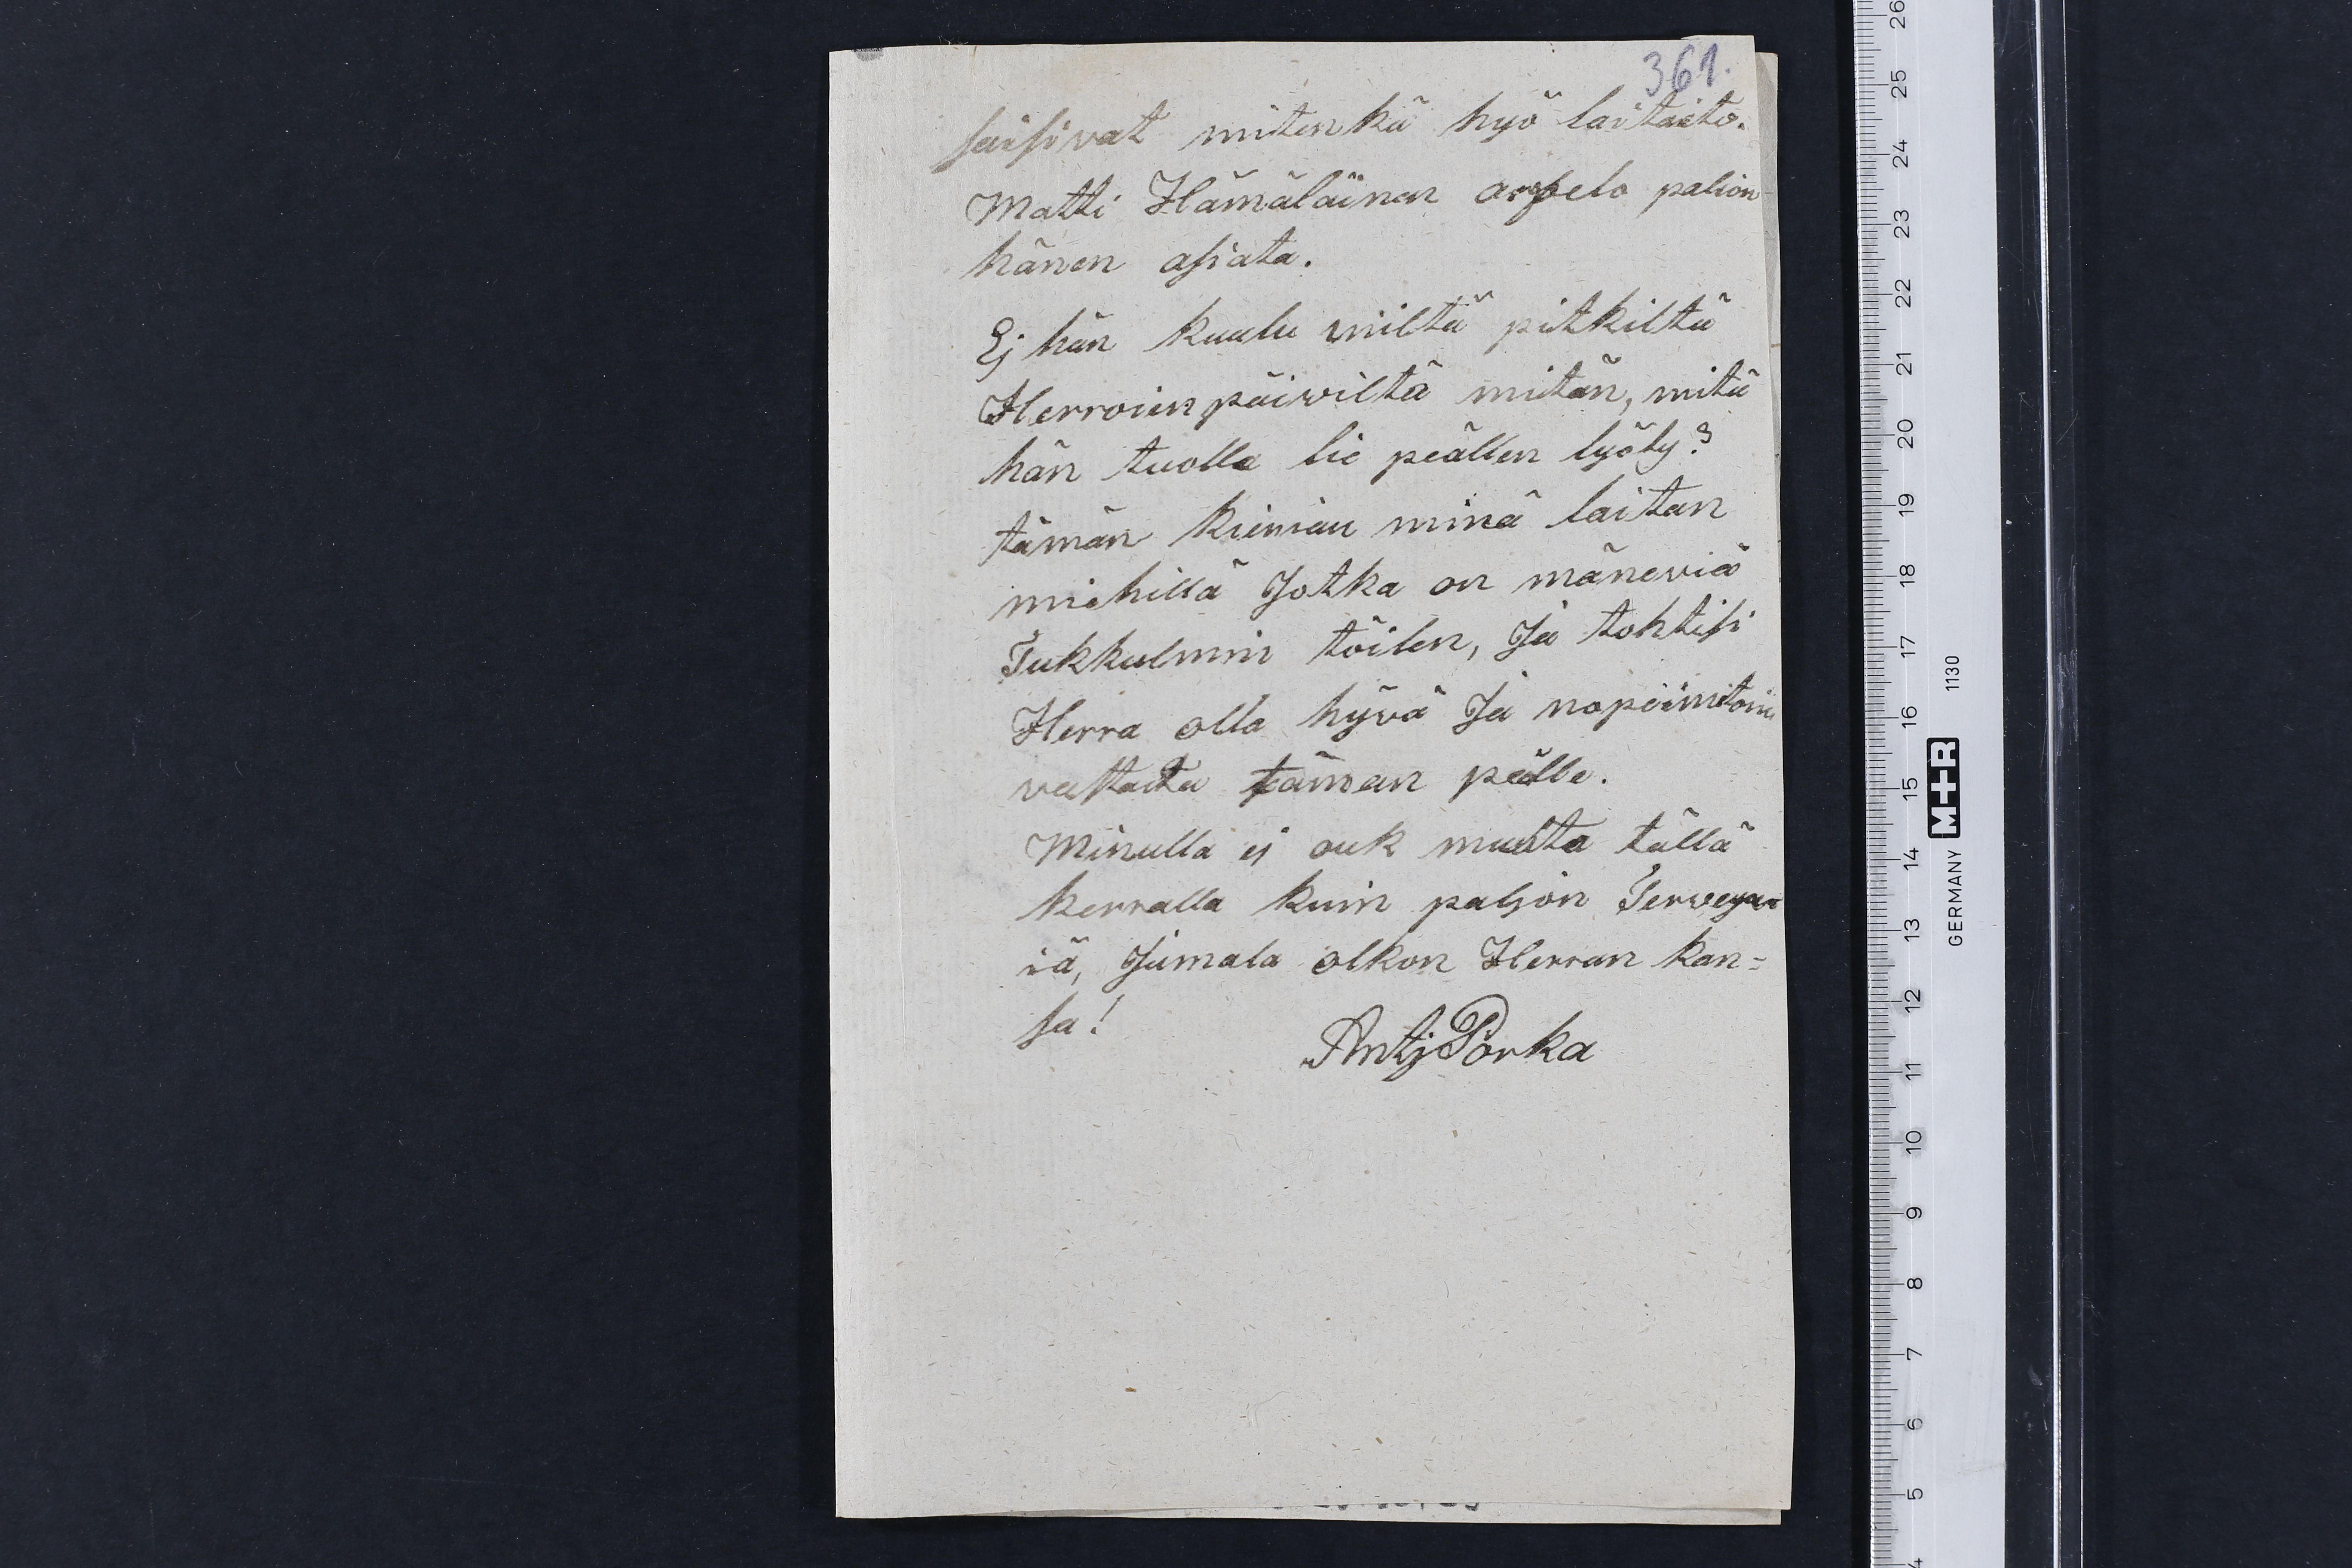 361.
saisivat mitenkä hyö laitaito.
Matti Hämäläinen arvelo palion
hänen asiata.
Ej hän kuulu miltä pitkiltä
Herroien päiwiltä mitän, mitä
hän tuolla lie peällen lyöty?
tämän kiirian minä laitan
miehillä Jotka on mäneviä
Tukkulmin töilen, Ja tohtisi
Herra olla hyvä Ja nopeimiton
vastata tämän pälle.
Minulla ej ouk muuta tällä
kerralla kuin paljon Terveyen
iä, Jumala olkon Herran kan=
sa!
Antj Porka
26
25
24
23
22
21
20
19
18
17
16
15
14
13
12
11
10
9
8
7
6
5
4
GERMANY M+R 1130